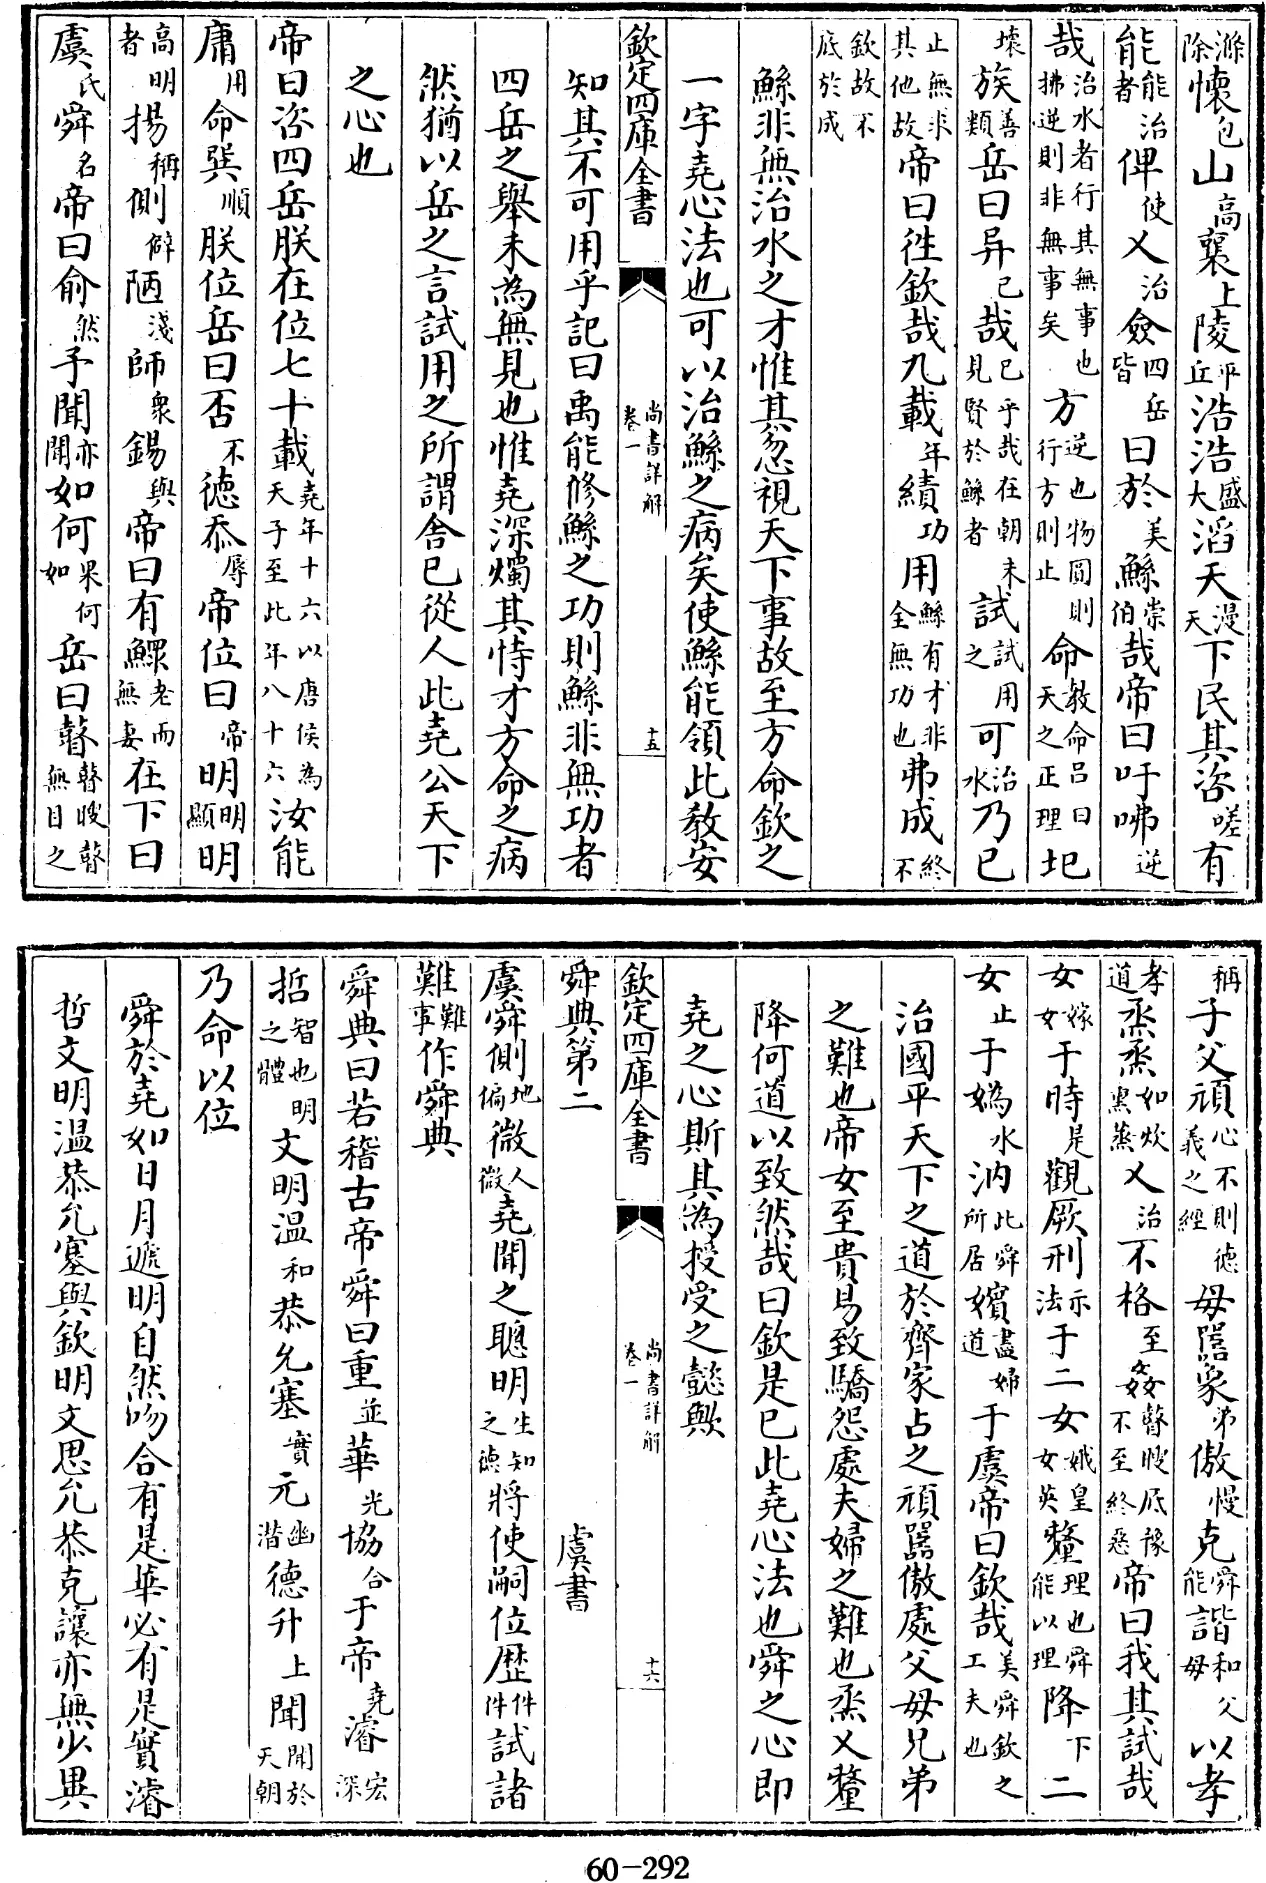 滌除懷包山高襄上陵平丘浩浩盛大滔天漫天下民其咨嗟有
能能治者俾使乂治僉四岳皆曰於美鯀崇伯哉帝曰吁咈逆
哉治水者行其無事也拂逆則非無事矣方逆也物圓則行方則止命教命呂曰天之正理圮
壞族善類岳曰异已哉已乎哉在朝未見賢於鯀者試試用之可治水乃已
止無求其他故帝曰往欽哉九載年績功用鯀有才非全無功也弗成終不
欽故不底於成
鯀非無治水之才惟其忽視天下事故至方命欽之
一字堯心法也可以治鯀之病矣使鯀能領此教安
欽定四庫全書 尚書詳解 卷一 十五
知其不可用乎記曰禹能修鯀之功則鯀非無功者
四岳之舉未為無見也惟堯深燭其恃才方命之病
然猶以岳之言試用之所謂舍已從人此堯公天下
之心也
帝曰咨四岳朕在位七十載堯年十六以唐侯為天子至此年八十六汝能
庸用命巽順朕位岳曰否不德忝辱帝位曰帝明明顯明
高明者揚稱側僻陋淺師衆錫與帝曰有鰥老而無妻在下曰
虞氏舜名帝曰俞然予聞亦聞如何果何如岳曰瞽瞽瞍瞽無目之
稱子父頑心不則德義之經母嚚象弟傲慢克舜能諧和父母以孝
孝道烝烝如炊熏蒸乂治不格至姦瞽瞍底豫不至終惡帝曰我其試哉
女嫁女于時是觀厥刑示法于二女娥皇女英釐理也舜能以理降下二
女止于媯水汭此舜所居嬪盡婦道于虞帝曰欽哉美舜欽之工夫也
治國平天下之道於齊家占之頑嚚傲處父母兄弟
之難也帝女至貴易致驕怨處夫婦之難也烝乂釐
降何道以致然哉曰欽是已此堯心法也舜之心即
堯之心斯其為授受之懿歟
欽定四庫全書 尚書詳解 卷一 十六
舜典第二 虞書
虞舜側地偏微人微堯聞之聰明生知之德將使嗣位歷件件試諸
難難事作舜典
舜典曰若稽古帝舜曰重並華光協合于帝堯濬宏深
哲智也明之體文明溫和恭允塞實元幽潛德升上聞聞於天朝
乃命以位
舜於堯如日月遞明自然吻合有是華必有是實濬
哲文明溫恭允塞與欽明文思允恭克讓亦無少異
60-292